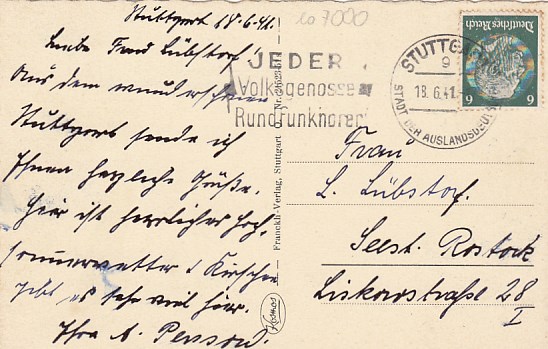 Stuttgart 18.6.41.
Liebe Frau Lübstorf!
Aus dem wunderschönen
Stuttgart sende ich
Ihnen herzliche Grüße.
Hier ist herrliches Hoch
sommerwetter & Kirschen
gibt es sehr viel hier.
Ihre A.
7000
JEDER
Volksgenosse
Rundfunkhörer
STUTTGART
9
18.6.41.
STADT DER AUSLANDSDEUTSCHEN
Deutsches Reich
6 6
Franckh-Verlag, Stuttgart
Kosmos
Frau
L. Lübstorf.
Seest. Rostock
Liskowstraße 28
I